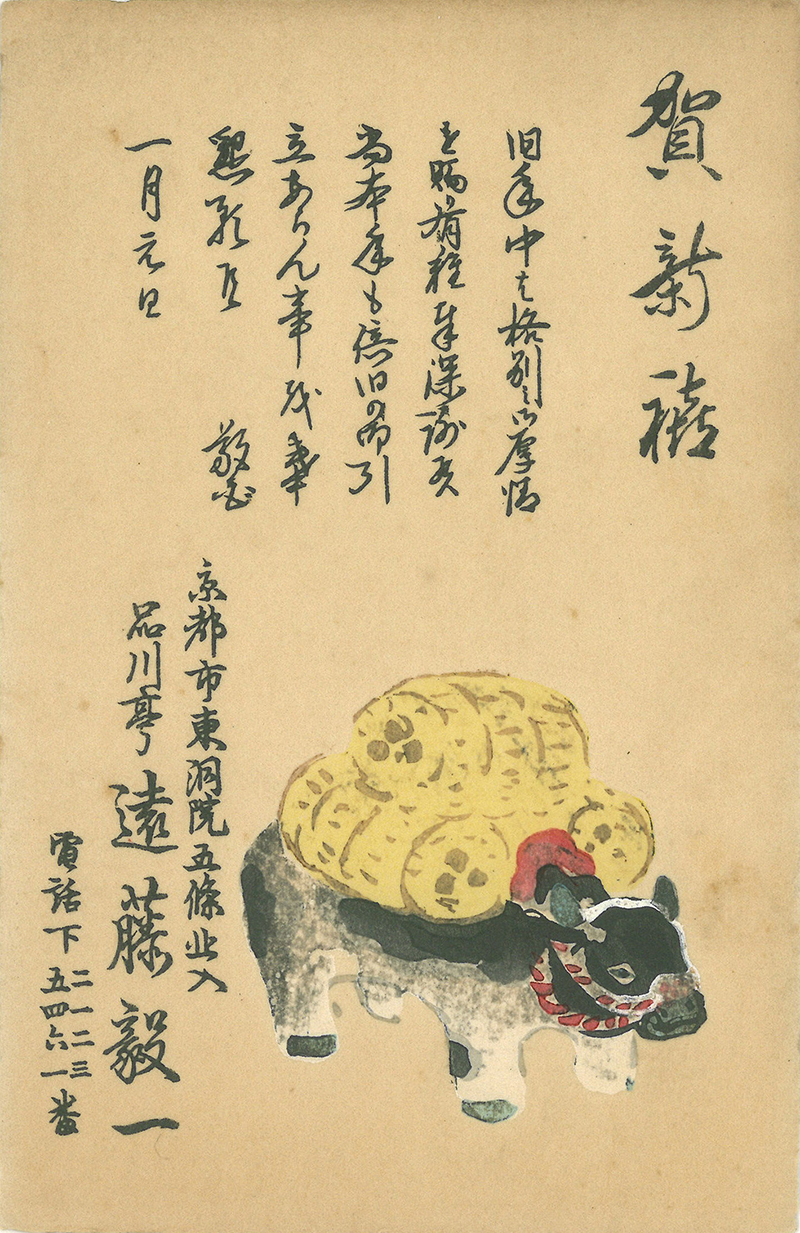 賀新禧
旧年中は格別之御厚情
を賜り有難く奉深謝候
尚本年も倍旧の御引
立あらん事伏而奉
懇願候 敬白
一月元旦
京都市東洞院五條北入
品川亭 遠藤毅一
電話下 二一二三 五四六一番